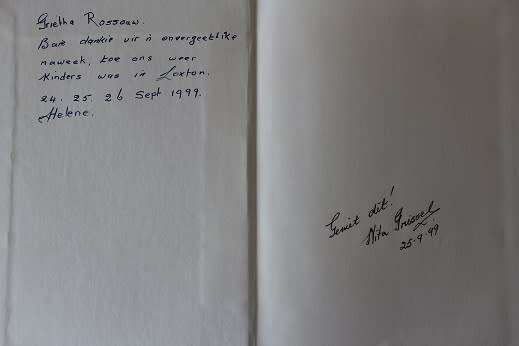 Grietha Rossouw.
Baie dankie vir 'n onvergeetlike
naweek, toe ons weer
kinders was in Loxton.
24. 25. 26 Sept 1999.
Helene.
Geniet dit!
Nita Grissel
25-9-99